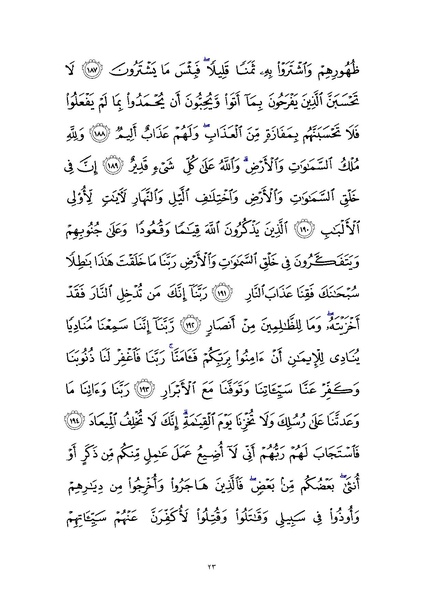 ظُهُورِهِمْ وَٱشْتَرَوْا۟ بِهِۦ ثَمَنًا قَلِيلًا ۖ فَبِئْسَ مَا يَشْتَرُونَ ﴿١٨٧﴾ لَا
تَحْسَبَنَّ ٱلَّذِينَ يَفْرَحُونَ بِمَآ أَتَوا۟ وَّيُحِبُّونَ أَن يُحْمَدُوا۟ بِمَا لَمْ يَفْعَلُوا۟
فَلَا تَحْسَبَنَّهُم بِمَفَازَةٍ مِّنَ ٱلْعَذَابِ ۖ وَلَهُمْ عَذَابٌ أَلِيمٌ ﴿١٨٨﴾ وَلِلَّهِ
مُلْكُ ٱلسَّمَـٰوَٰتِ وَٱلْأَرْضِ ۗ وَٱللَّهُ عَلَىٰ كُلِّ شَىْءٍ قَدِيرٌ ﴿١٨٩﴾ إِنَّ فِى
خَلْقِ ٱلسَّمَـٰوَٰتِ وَٱلْأَرْضِ وَٱخْتِلَـٰفِ ٱلَّيْلِ وَٱلنَّهَارِ لَـَٔايَـٰتٍ لِّأُو۟لِى
ٱلْأَلْبَـٰبِ ﴿١٩٠﴾ ٱلَّذِينَ يَذْكُرُونَ ٱللَّهَ قِيَـٰمًا وَقُعُودًا وَعَلَىٰ جُنُوبِهِمْ
وَيَتَفَكَّرُونَ فِى خَلْقِ ٱلسَّمَـٰوَٰتِ وَٱلْأَرْضِ رَبَّنَا مَا خَلَقْتَ هَـٰذَا بَـٰطِلًا
سُبْحَـٰنَكَ فَقِنَا عَذَابَ ٱلنَّارِ ﴿١٩١﴾ رَبَّنَآ إِنَّكَ مَن تُدْخِلِ ٱلنَّارَ فَقَدْ
أَخْزَيْتَهُۥ ۖ وَمَا لِلظَّـٰلِمِينَ مِنْ أَنصَارٍ ﴿١٩٢﴾ رَّبَّنَآ إِنَّنَا سَمِعْنَا مُنَادِيًا
يُنَادِى لِلْإِيمَـٰنِ أَنْ ءَامِنُوا۟ بِرَبِّكُمْ فَـَٔامَنَّا ۚ رَبَّنَا فَٱغْفِرْ لَنَا ذُنُوبَنَا
وَكَفِّرْ عَنَّا سَيِّـَٔاتِنَا وَتَوَفَّنَا مَعَ ٱلْأَبْرَارِ ﴿١٩٣﴾ رَبَّنَا وَءَاتِنَا مَا
وَعَدتَّنَا عَلَىٰ رُسُلِكَ وَلَا تُخْزِنَا يَوْمَ ٱلْقِيَـٰمَةِ ۗ إِنَّكَ لَا تُخْلِفُ ٱلْمِيعَادَ ﴿١٩٤﴾
فَٱسْتَجَابَ لَهُمْ رَبُّهُمْ أَنِّى لَآ أُضِيعُ عَمَلَ عَـٰمِلٍ مِّنكُم مِّن ذَكَرٍ أَوْ
أُنثَىٰ ۖ بَعْضُكُم مِّنۢ بَعْضٍ ۖ فَٱلَّذِينَ هَاجَرُوا۟ وَأُخْرِجُوا۟ مِن دِيَـٰرِهِمْ
وَأُوذُوا۟ فِى سَبِيلِى وَقَـٰتَلُوا۟ وَقُتِلُوا۟ لَأُكَفِّرَنَّ عَنْهُمْ سَيِّـَٔاتِهِمْ
٢٣